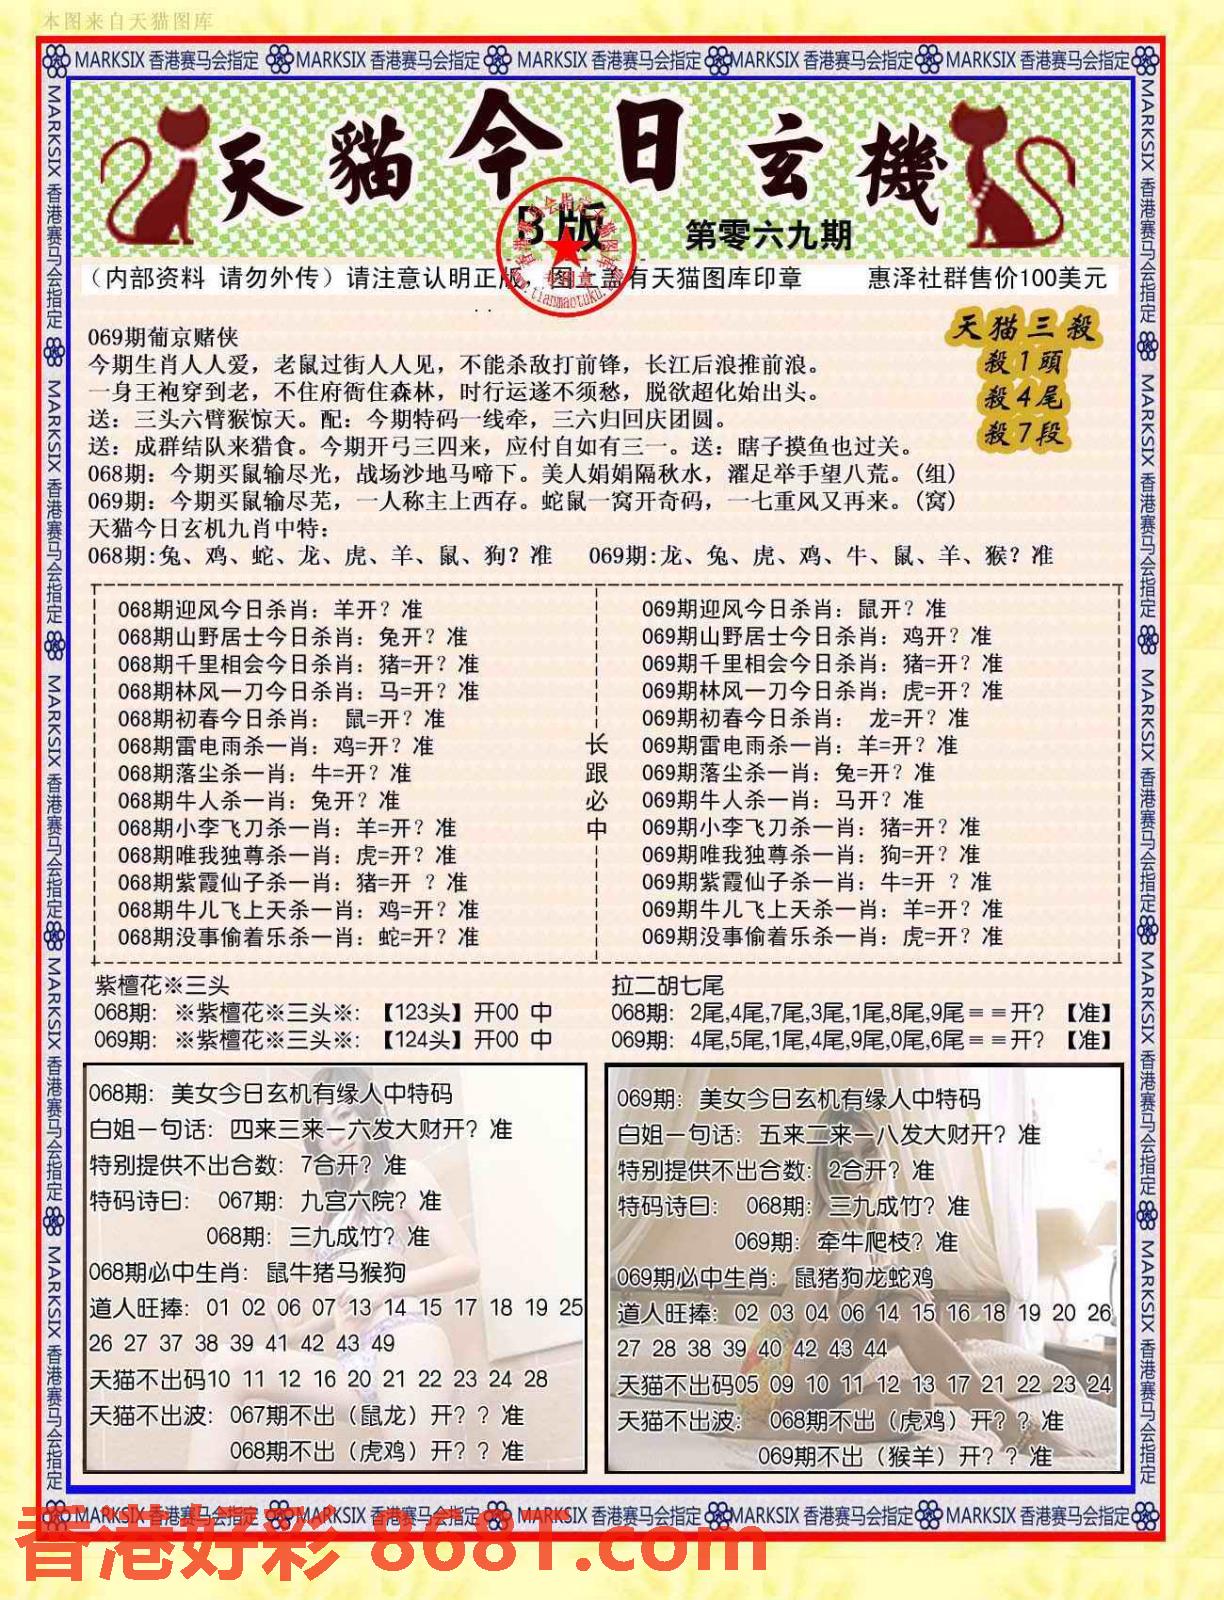 本图来自天猫图库
MARKSIX 香港赛马会指定 MARKSIX 香港赛马会指定 MARKSIX 香港赛马会指定 MARKSIX 香港赛马会指定 MARKSIX 香港赛马会指定
天貓今日玄機
B版 第零六九期
(内部资料 请勿外传)请注意认明正版 图 盖有天猫图库印章 惠泽社群售价100美元
天猫三殺
殺1頭
殺4尾
殺7段
069期葡京赌侠
今期生肖人人爱，老鼠过街人人见，不能杀敌打前锋，长江后浪推前浪。
一身王袍穿到老，不住府衙住森林，时行运遂不须愁，脱欲超化始出头。
送：三头六臂猴惊天。配：今期特码一线牵，三六归回庆团圆。
送：成群结队来猎食。今期开弓三四来，应付自如有三一。送：瞎子摸鱼也过关。
068期：今期买鼠输尽光，战场沙地马啼下。美人娟娟隔秋水，濯足举手望八荒。(组)
069期：今期买鼠输尽芜，一人称主上西存。蛇鼠一窝开奇码，一七重风又再来。(窝)
天猫今日玄机九肖中特：
068期:兔、鸡、蛇、龙、虎、羊、鼠、狗？准 069期:龙、兔、虎、鸡、牛、鼠、羊、猴？准
068期迎风今日杀肖：羊开？准
068期山野居士今日杀肖：兔开？准
068期千里相会今日杀肖：猪=开？准
068期林风一刀今日杀肖：马=开？准
068期初春今日杀肖： 鼠=开？准
068期雷电雨杀一肖：鸡=开？准
068期落尘杀一肖：牛=开？准
068期牛人杀一肖：兔开？准
068期小李飞刀杀一肖：羊=开？准
068期唯我独尊杀一肖：虎=开？准
068期紫霞仙子杀一肖：猪=开 ？准
068期牛儿飞上天杀一肖：鸡=开？准
068期没事偷着乐杀一肖：蛇=开？准
长跟必中
069期迎风今日杀肖：鼠开？准
069期山野居士今日杀肖：鸡开？准
069期千里相会今日杀肖：猪=开？准
069期林风一刀今日杀肖：虎=开？准
069期初春今日杀肖： 龙=开？准
069期雷电雨杀一肖：羊=开？准
069期落尘杀一肖：兔=开？准
069期牛人杀一肖：马开？准
069期小李飞刀杀一肖：猪=开？准
069期唯我独尊杀一肖：狗=开？准
069期紫霞仙子杀一肖：牛=开 ？准
069期牛儿飞上天杀一肖：羊=开？准
069期没事偷着乐杀一肖：虎=开？准
紫檀花※三头
068期：※紫檀花※三头※：【123头】开00 中
069期：※紫檀花※三头※：【124头】开00 中
拉二胡七尾
068期：2尾,4尾,7尾,3尾,1尾,8尾,9尾＝＝开？【准】
069期：4尾,5尾,1尾,4尾,9尾,0尾,6尾＝＝开？【准】
068期：美女今日玄机有缘人中特码
白姐一句话：四来三来一六发大财开？准
特别提供不出合数：7合开？准
特码诗曰： 067期：九宫六院？准
068期：三九成竹？准
068期必中生肖：鼠牛猪马猴狗
道人旺捧：01 02 06 07 13 14 15 17 18 19 25
26 27 37 38 39 41 42 43 49
天猫不出码10 11 12 16 20 21 22 23 24 28
天猫不出波：067期不出（鼠龙）开？？准
068期不出（虎鸡）开？？准
069期：美女今日玄机有缘人中特码
白姐一句话：五来二来一八发大财开？准
特别提供不出合数：2合开？准
特码诗曰： 068期：三九成竹？准
069期：牵牛爬枝？准
069期必中生肖：鼠猪狗龙蛇鸡
道人旺捧：02 03 04 06 14 15 16 18 19 20 26
27 28 38 39 40 42 43 44
天猫不出码05 09 10 11 12 13 17 21 22 23 24
天猫不出波： 068期不出（虎鸡）开？？准
069期不出（猴羊）开？？准
MARKSIX 香港赛马会指定 MARKSIX 香港赛马会指定 MARKSIX 香港赛马会指定 MARKSIX 香港赛马会指定 MARKSIX 香港赛马会指定
香港好彩 8681.com